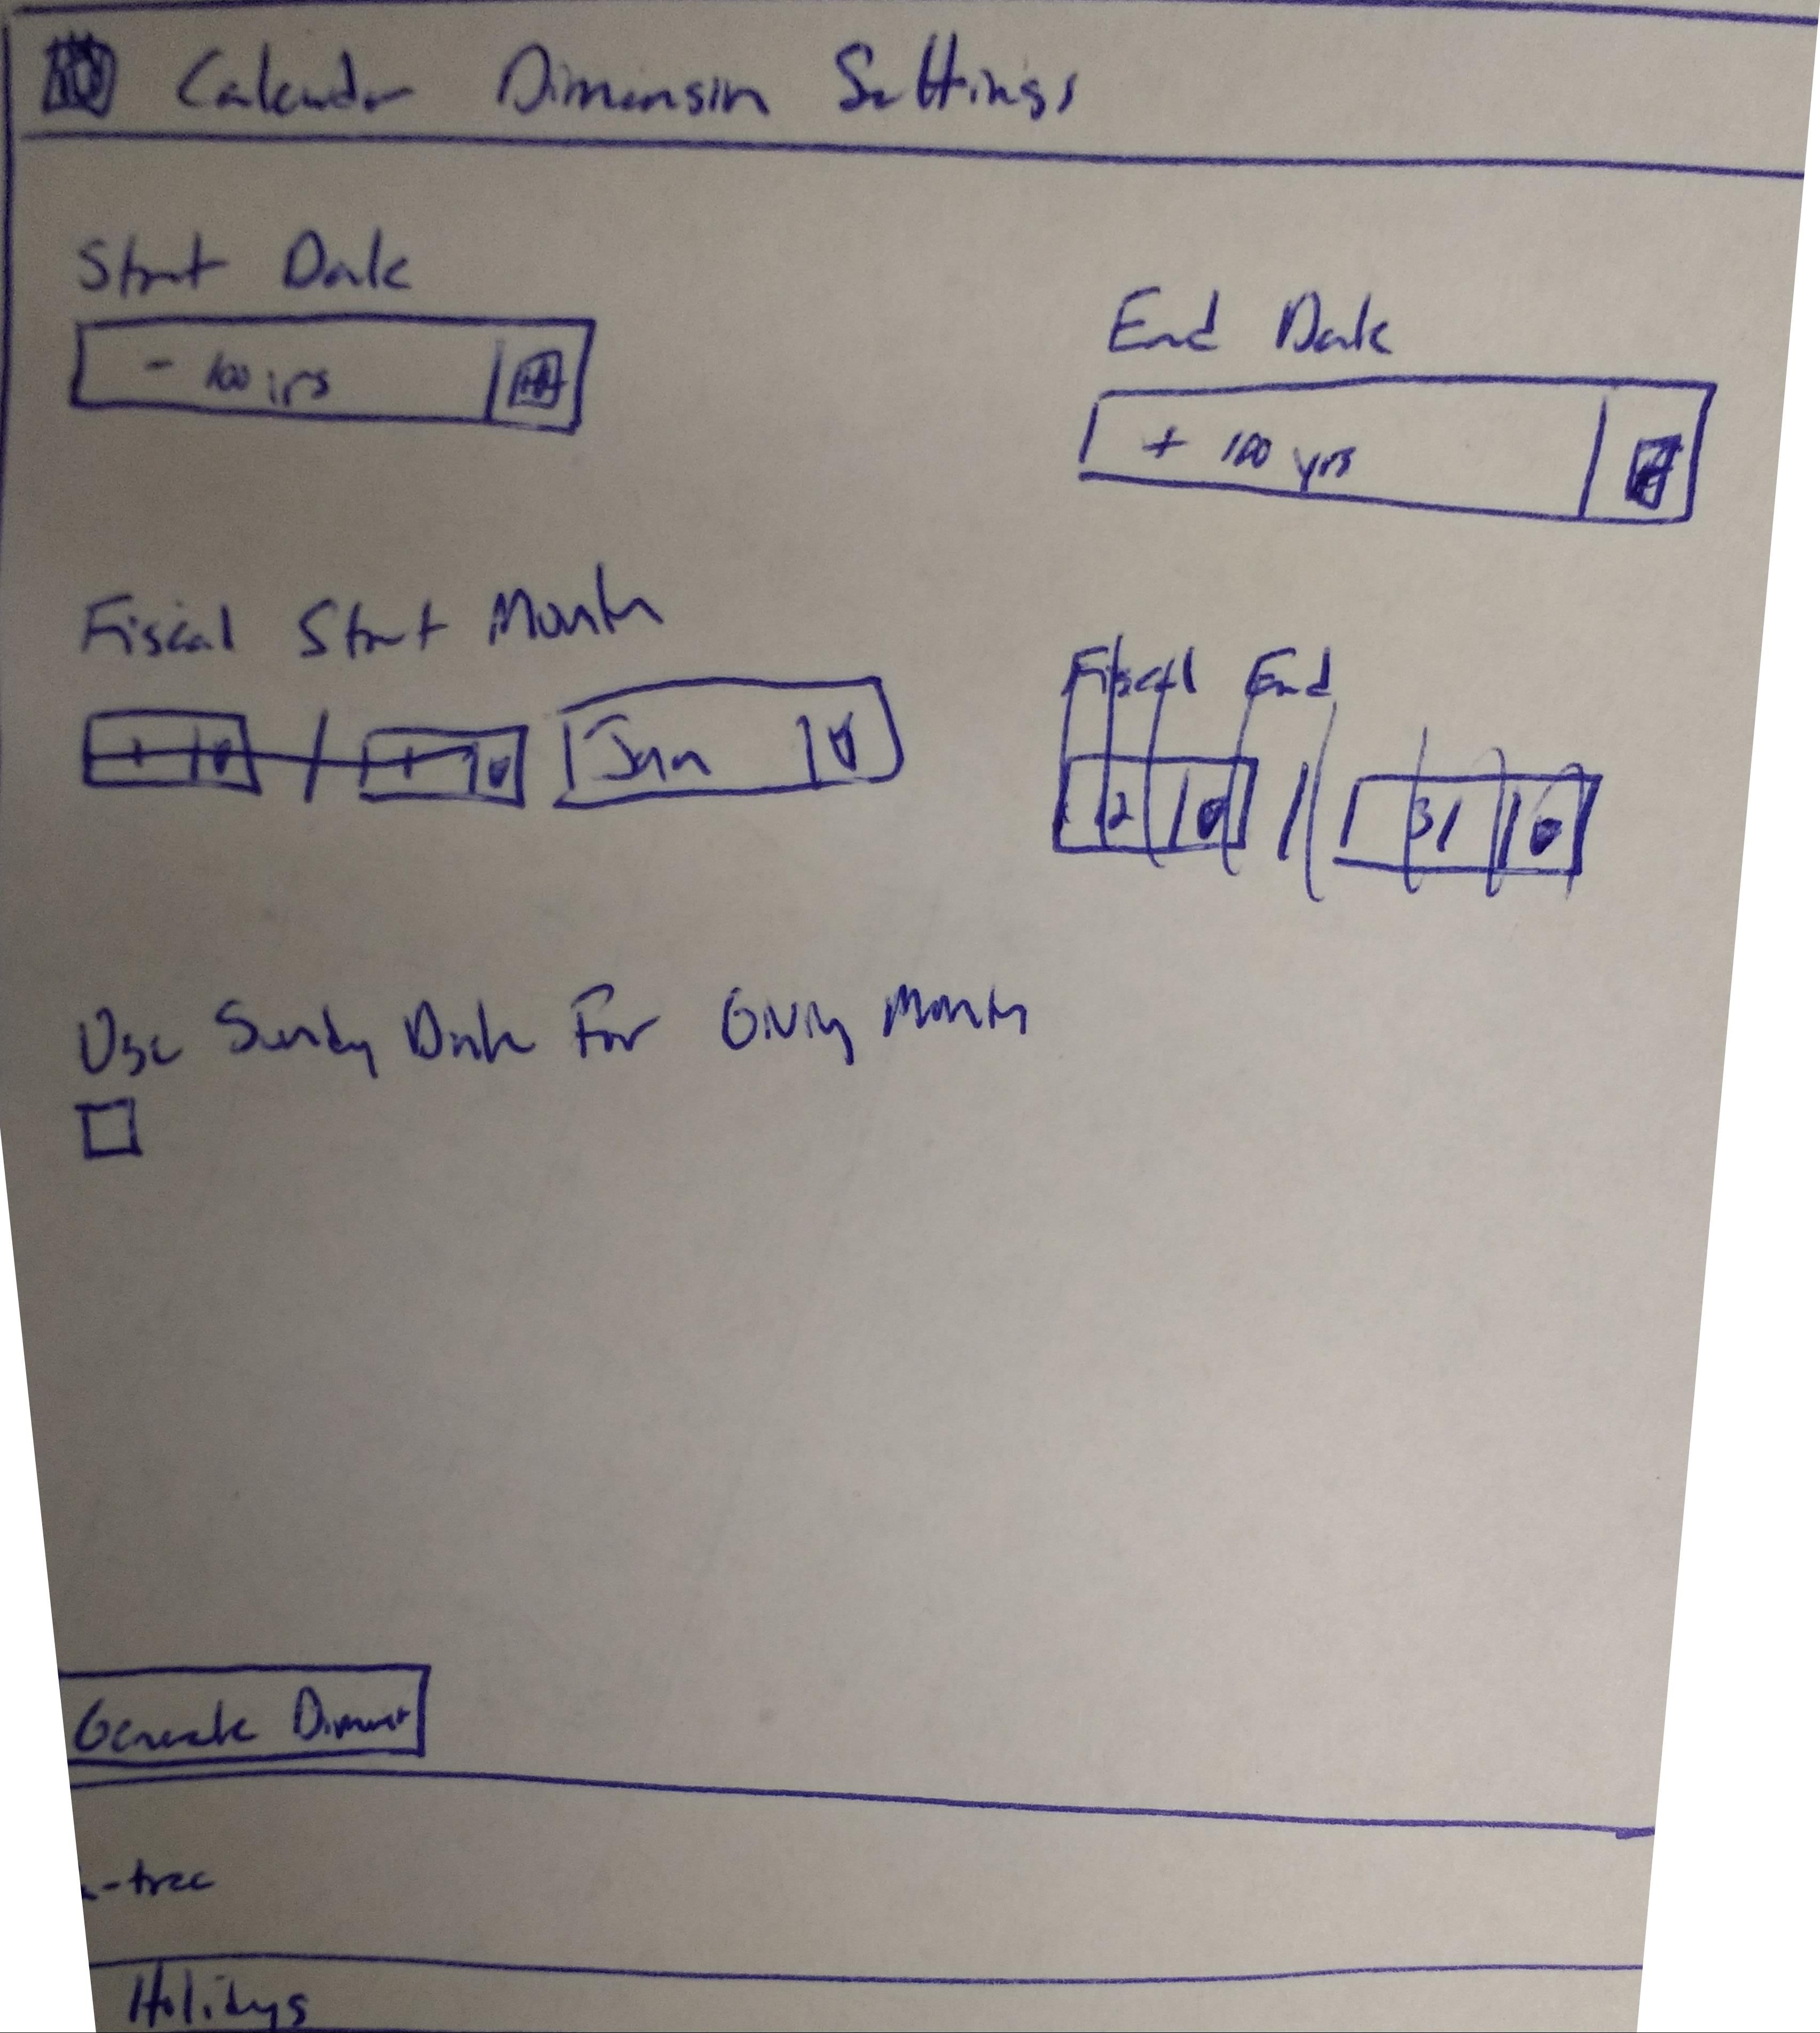 Calendar Dimension Settings
Start Date
- 100 yrs
End Date
+ 100 yrs
Fiscal Start Month
1 / 1 Jan
Fiscal End
12 / 31
Use Sunday Date For Giving Month
Generate Dimension
-tree
Holidays